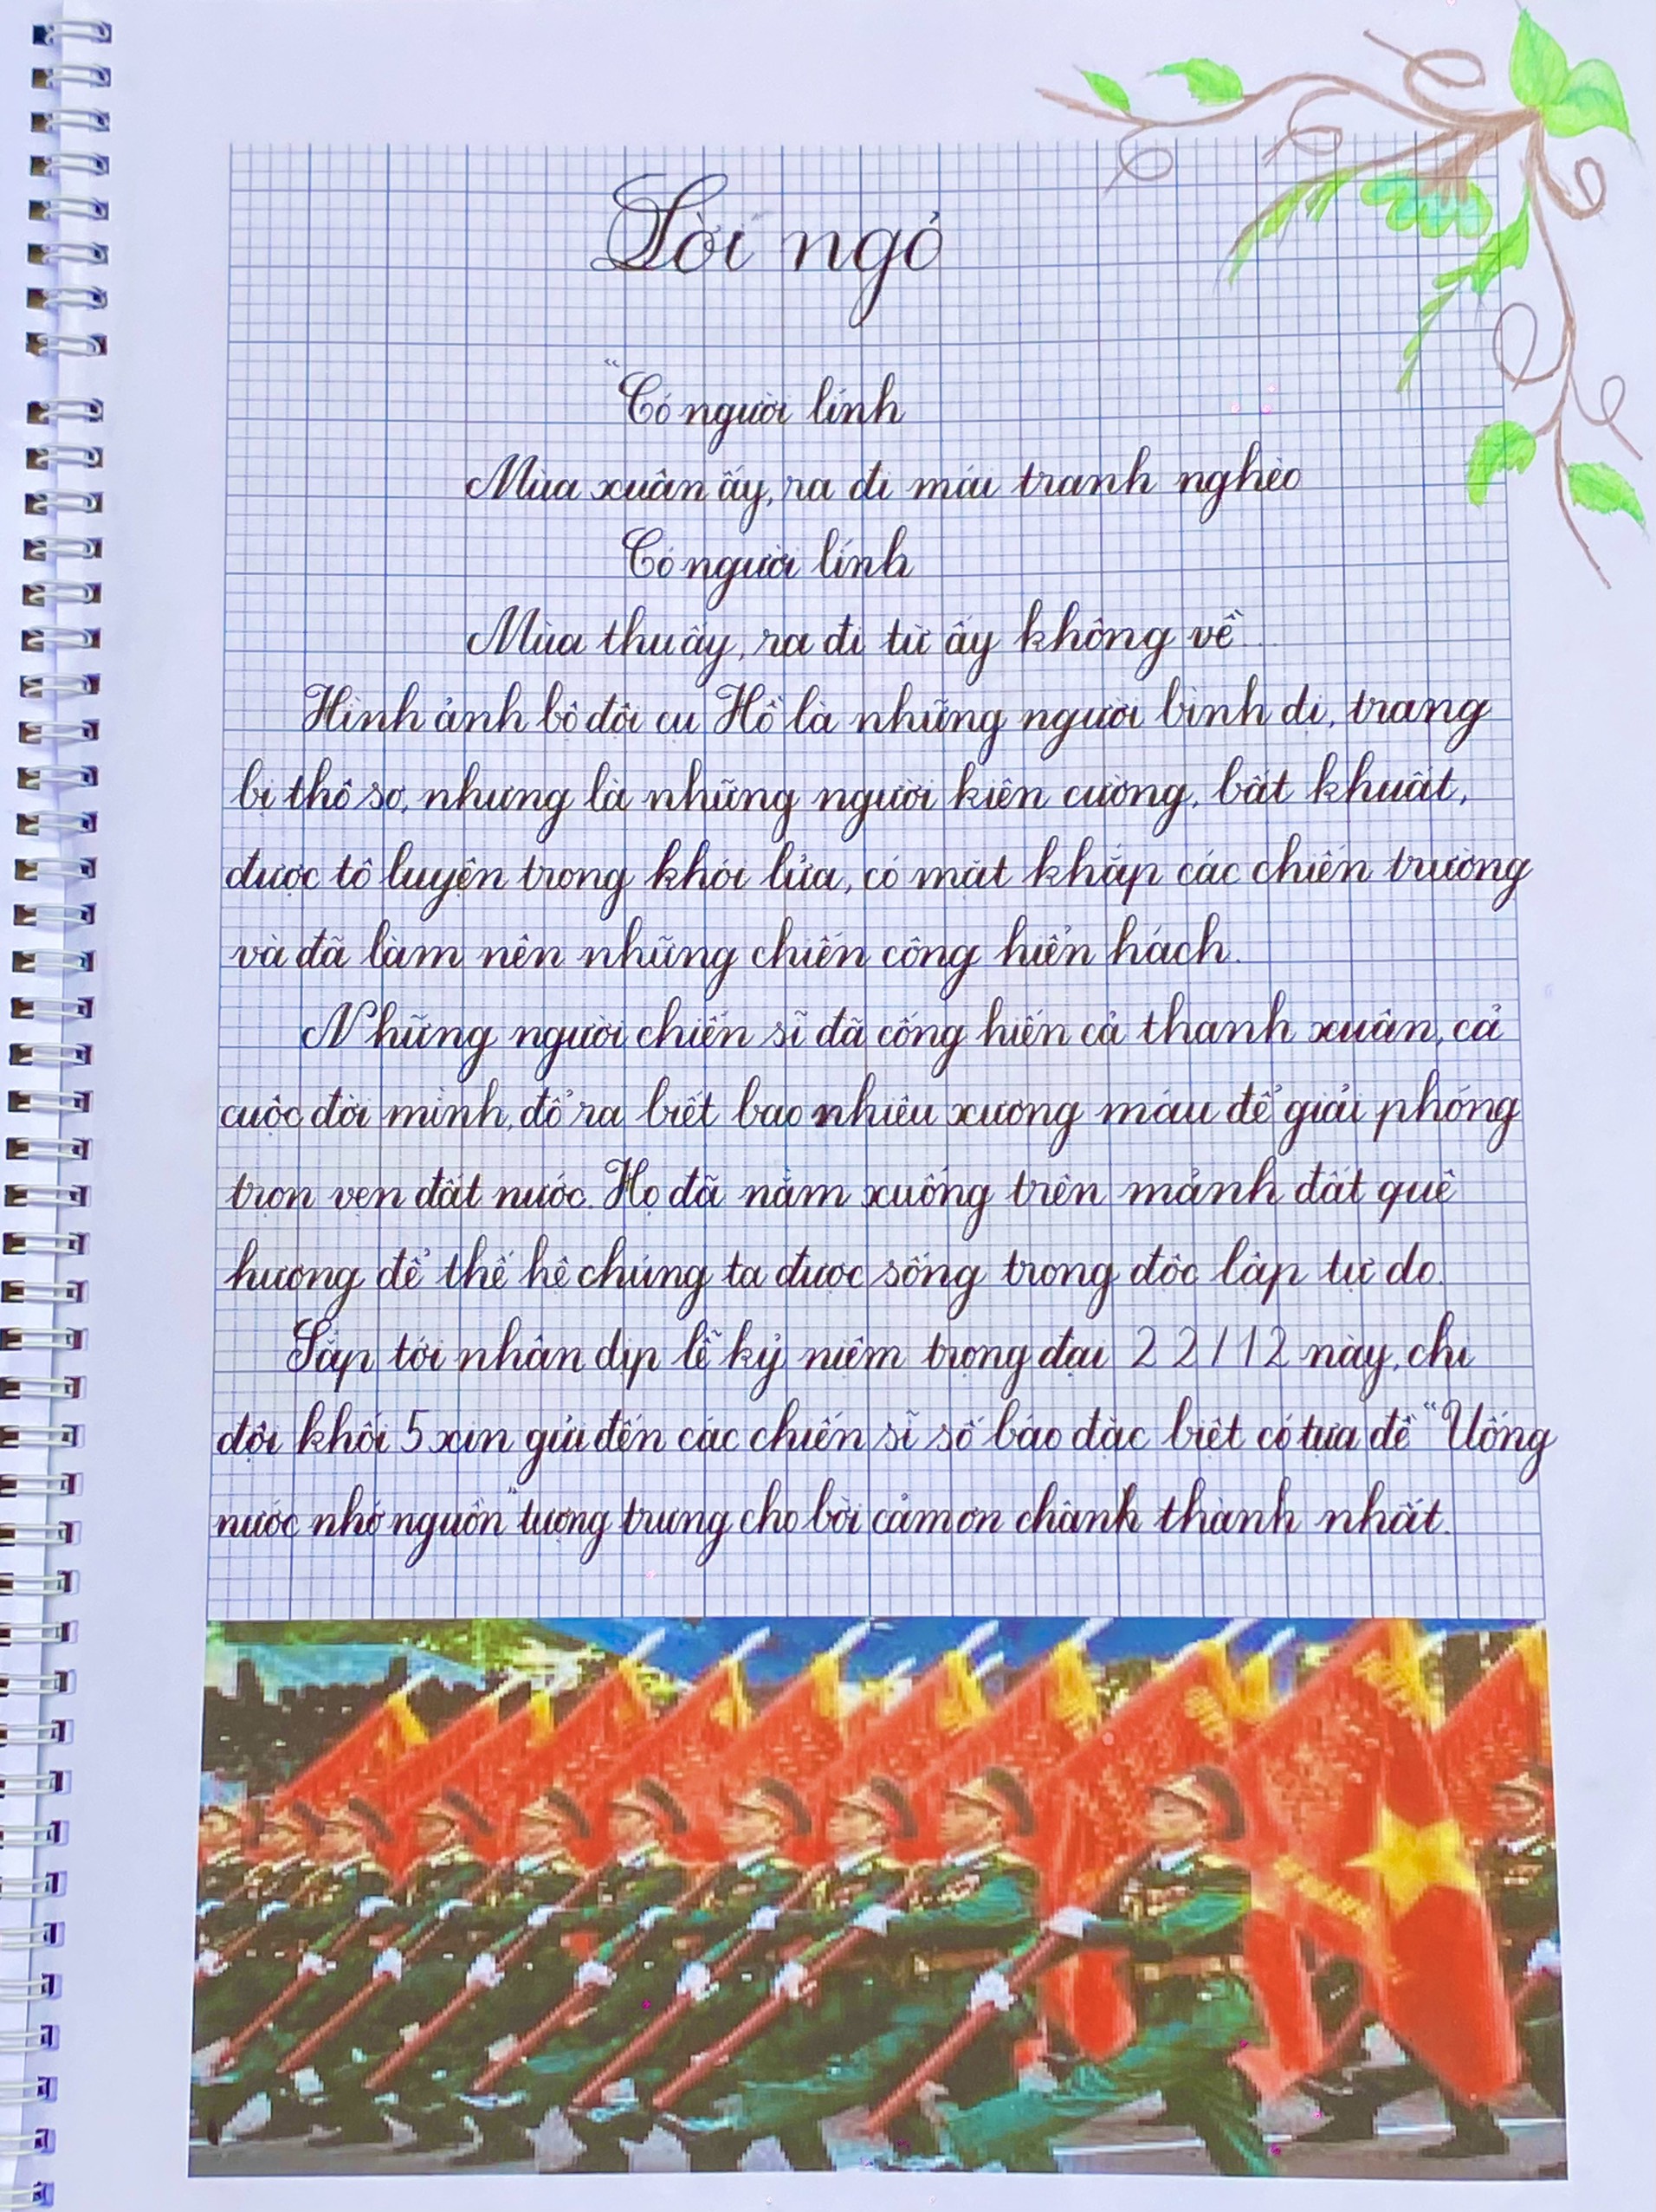 Lời ngỏ
"Có người lính
Mùa xuân ấy, ra đi mái tranh nghèo
Có người lính
Mùa thu ấy, ra đi từ ấy không về...
Hình ảnh bộ đội cụ Hồ là những người bình dị, trang
bị thô sơ, nhưng là những người kiên cường, bất khuất,
được tô luyện trong khói lửa, có mặt khắp các chiến trường
và đã làm nên những chiến công hiển hách.
Những người chiến sĩ đã cống hiến cả thanh xuân, cả
cuộc đời mình, đổ ra biết bao nhiêu xương máu để giải phóng
trọn vẹn đất nước. Họ đã nằm xuống trên mảnh đất quê
hương để thế hệ chúng ta được sống trong độc lập tự do.
Sắp tới nhân dịp lễ kỷ niệm trọng đại 22/12 này, chi
đội khối 5 xin gửi đến các chiến sĩ số báo đặc biệt có tựa đề "Uống
nước nhớ nguồn" tượng trưng cho lời cảm ơn chânh thành nhất.